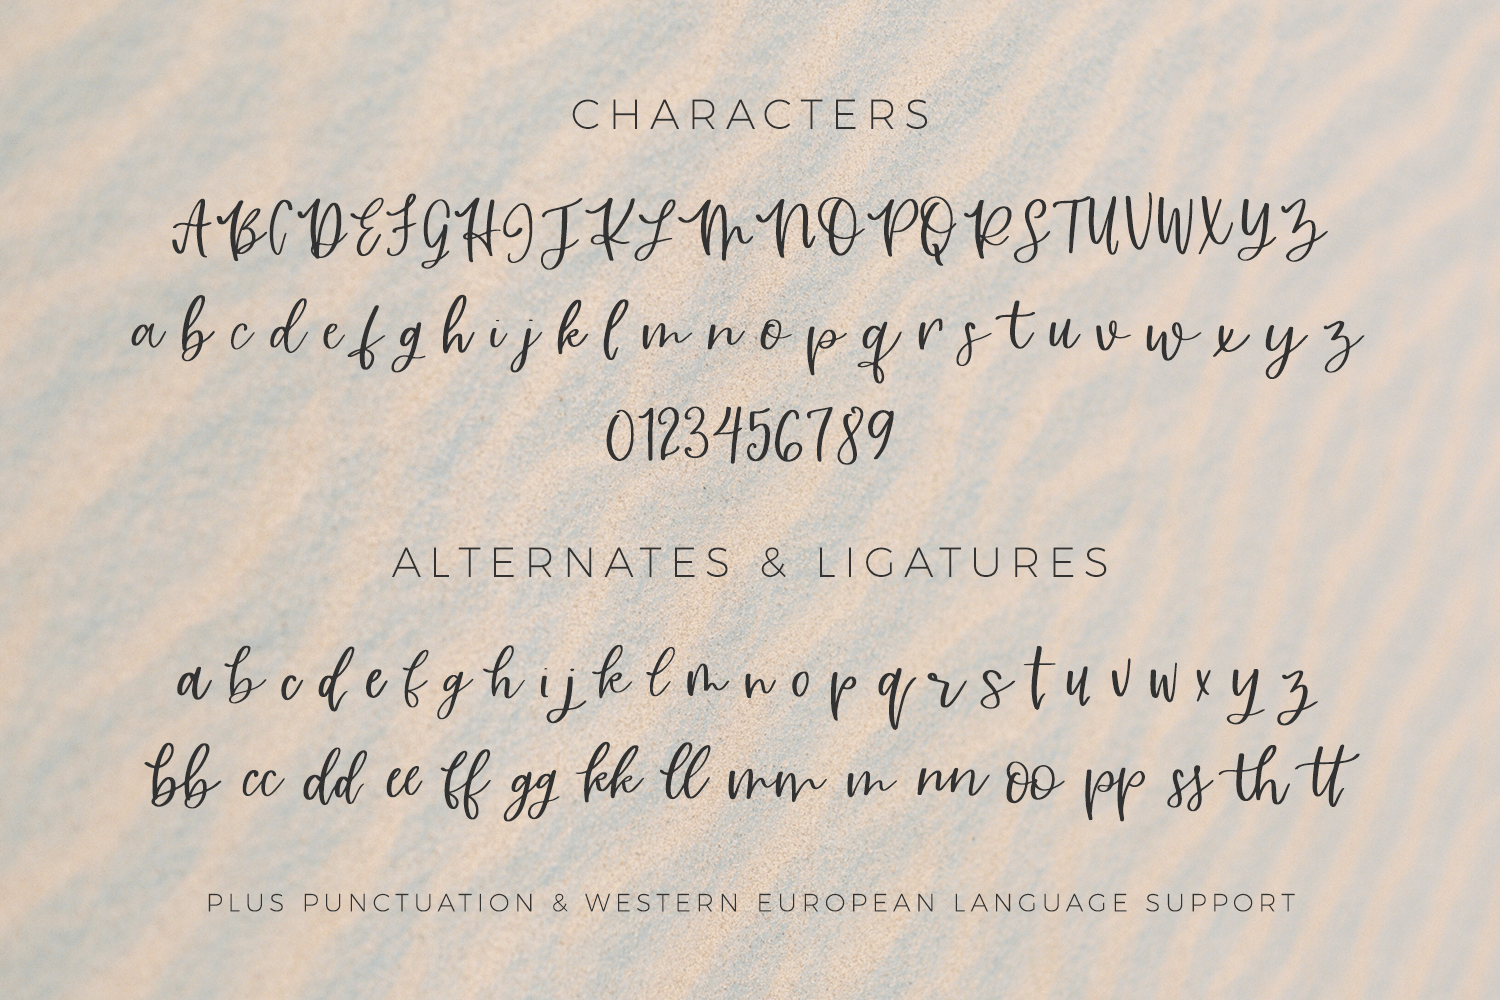 CHARACTERS
ABCDEFGHIJKLMNOPQRSTUVWXYZ
a b c d e f g h i j k l m n o p q r s t u v w x y z
0123456789
ALTERNATES & LIGATURES
a b c d e f g h i j k l m n o p q r s t u v w x y z
bb cc dd ee ff gg kk ll mm m nn oo pp ss th tt
PLUS PUNCTUATION & WESTERN EUROPEAN LANGUAGE SUPPORT